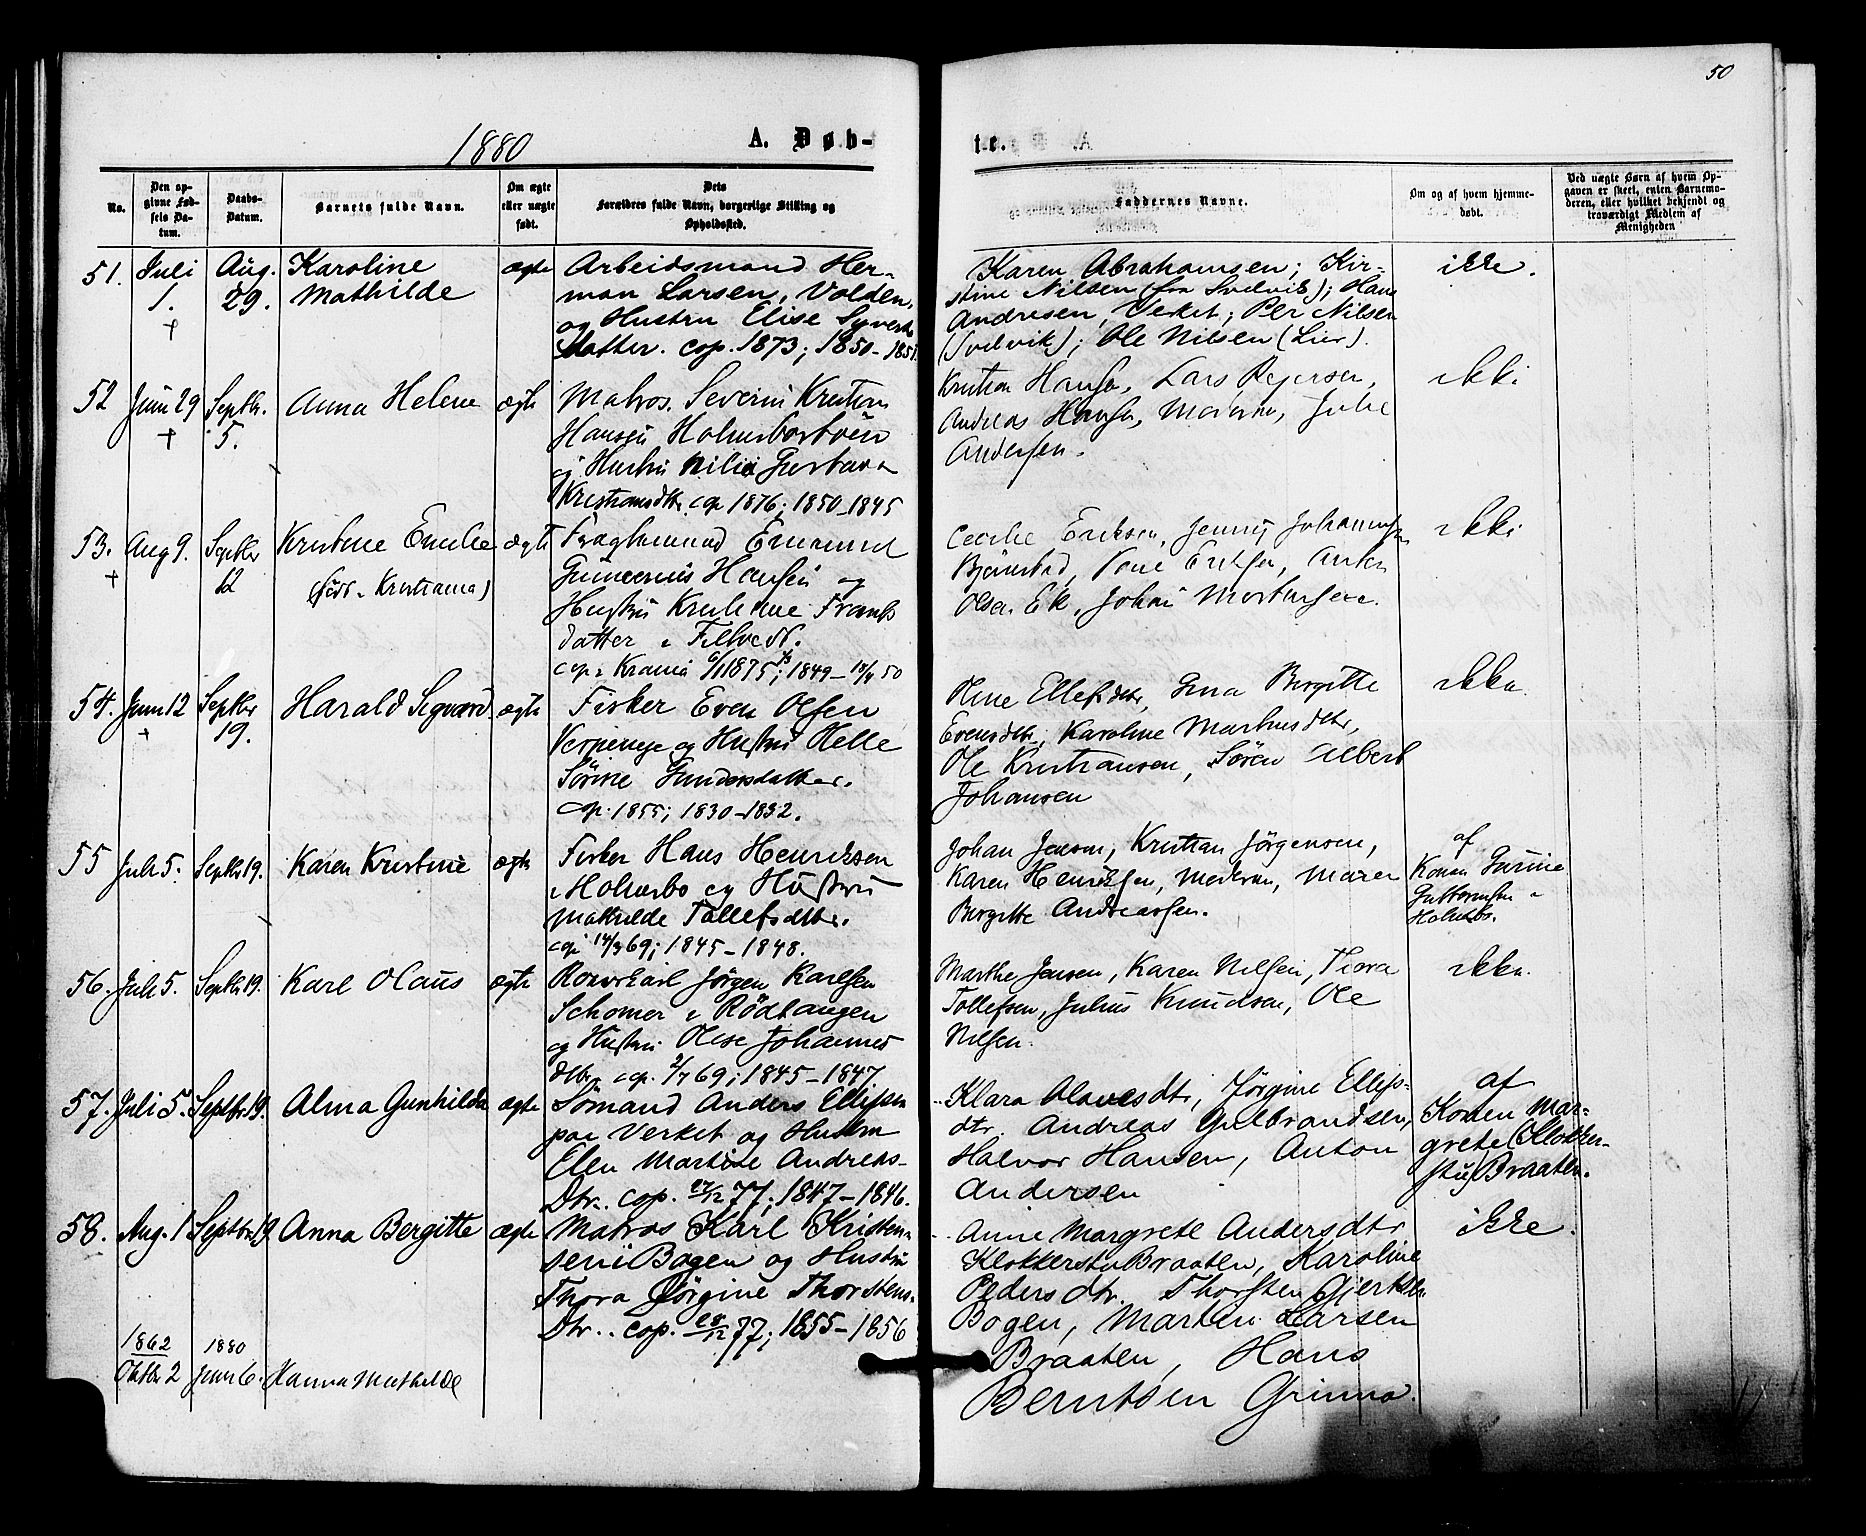 50
1880
A. Døb-
te.
No.
Den op-
givne Fød-
sels Da-
tum.
Daabs-
Datum.
Barnets fulde Navn.
Om ægte
eller uægte
født.
Dets
Forældres fulde Navn, borgerlige Stilling og
Opholdssted.
Faddernes Navne.
Om og af hvem hjemme-
døbt.
Ved uægte Børn af hvem Op-
gaven er skeet, enten Barnemo-
deren, eller hvilket bekjendt og
troværdigt Medlem af
Menigheden
51. Juli 1. Aug. 29.
Karoline
Mathilde
ægte
Arbeidsmand Her-
man Larsen, Volden,
og Hustru Elise Syverts
datter. cop. 1873; 1850-1851
Karen Abrahamsen; Kir-
stine Nilsen (fra Svelvik); Hans
Andresen, Verket; Per Nilsen
(Svelvik); Ole Nilsen (Lier).
ikke.
52 Juni 29 Septbr. 5.
Anna Helene
ægte
Matros. Severin Kristian
Hansen Holmsbostøen
og Hustru Nilia Gustava
Kristiansdtr. cop 1876; 1850-1845
Kristian Hansen, Lars Reiersen,
Andreas Hansen, Moderen, Julie
Andersen.
ikke
53. Aug 9. Septbr 12
Kristine Emilie
(født i Kristiania)
ægte
Emund
Gunerius Hansen og
Hustru Kristine Frants
datter i Filtvedt.
cop i Krania 6/1 1875; 1849-13/4 50
Cecilie Eriksen, Jenny Johannesen
Bjørnstad, Eriksen, Anton
Olsen Ek, Johan Mortensen.
ikke
54. Juni 12 Septbr 19.
Harald Sigvard
ægte
Fisker Even Olsen
Verpenge og Hustru Helle
Sørine Gundersdatter.
cop. 1855; 1830-1832.
Oline Ellefsdtr, Gina Birgitte
Evensdtr, Karoline Markusdtr,
Ole Kristiansen, Søren Albert
Johansen
ikke.
55 Juli 5. Septbr 19.
Karen Kristine
ægte
Fisker Hans Henriksen
i Holmsbo og Hustru
Mathilde Tollefsdtr.
cop 14/3 69; 1845-1848.
Johan Jensen, Kristian Jørgensen,
Karen Henriksen, Moderen, Maren
Birgitte Andreassen.
af
Konen Gurine
Guttormsen i
Holmsbo.
56. Juli 5. Septbr 19.
Karl Olaus
ægte
Roerskarl Jørgen Karlsen
Schomer i Rødtangen
og Hustru Olese Johannes
dtr. cop. 2/7 69; 1845-1847
Marthe Jensen, Karen Nilsen, Thora
Tollefsen, Julius Knudsen, Ole
Nilsen.
ikke.
57. Juli 5. Septbr 19.
Alma Gunhilda
ægte
Sømand Anders Ellefsen
paa Verket og Hustru
Elen Martine Andreas-
Dtr. cop. 27/12 77; 1847-1846.
Klara Olavesdtr, Jørgine Ellefs-
dtr. Andreas Gulbrandsen,
Halvor Hansen, Anton
Andersen
af
Konen Mar-
grete (Klokker-
stu) Braaten.
58. Aug. 1 Septbr 19
Anna Bergitte
ægte
Matros Karl Kristen-
sen i Bogen og Hustru
Thora Jørgine Thorstens-
Dtr. cop. 28/12 77; 1855-1856
Anne Margrete Andersdtr
Klokkerstu Braaten, Karoline
Pedersdtr. Thorsten Gjertsen
Bogen, Martin Larsen
Braaten, Hans
Berntsen Grimsø.
ikke.
1862 1880
Oktbr 2 Juni 6. Hanna Mathilde